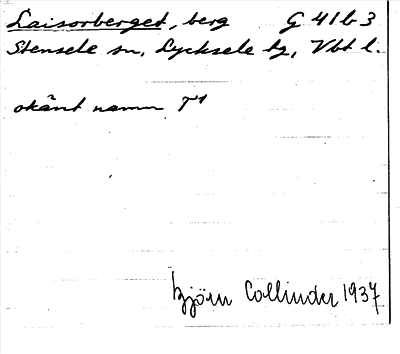 Laisorberget, berg G 41 b 3
Stensele sn, Lycksele tg, Vbt l.
okänt namn T1
Björn Collinder 1937